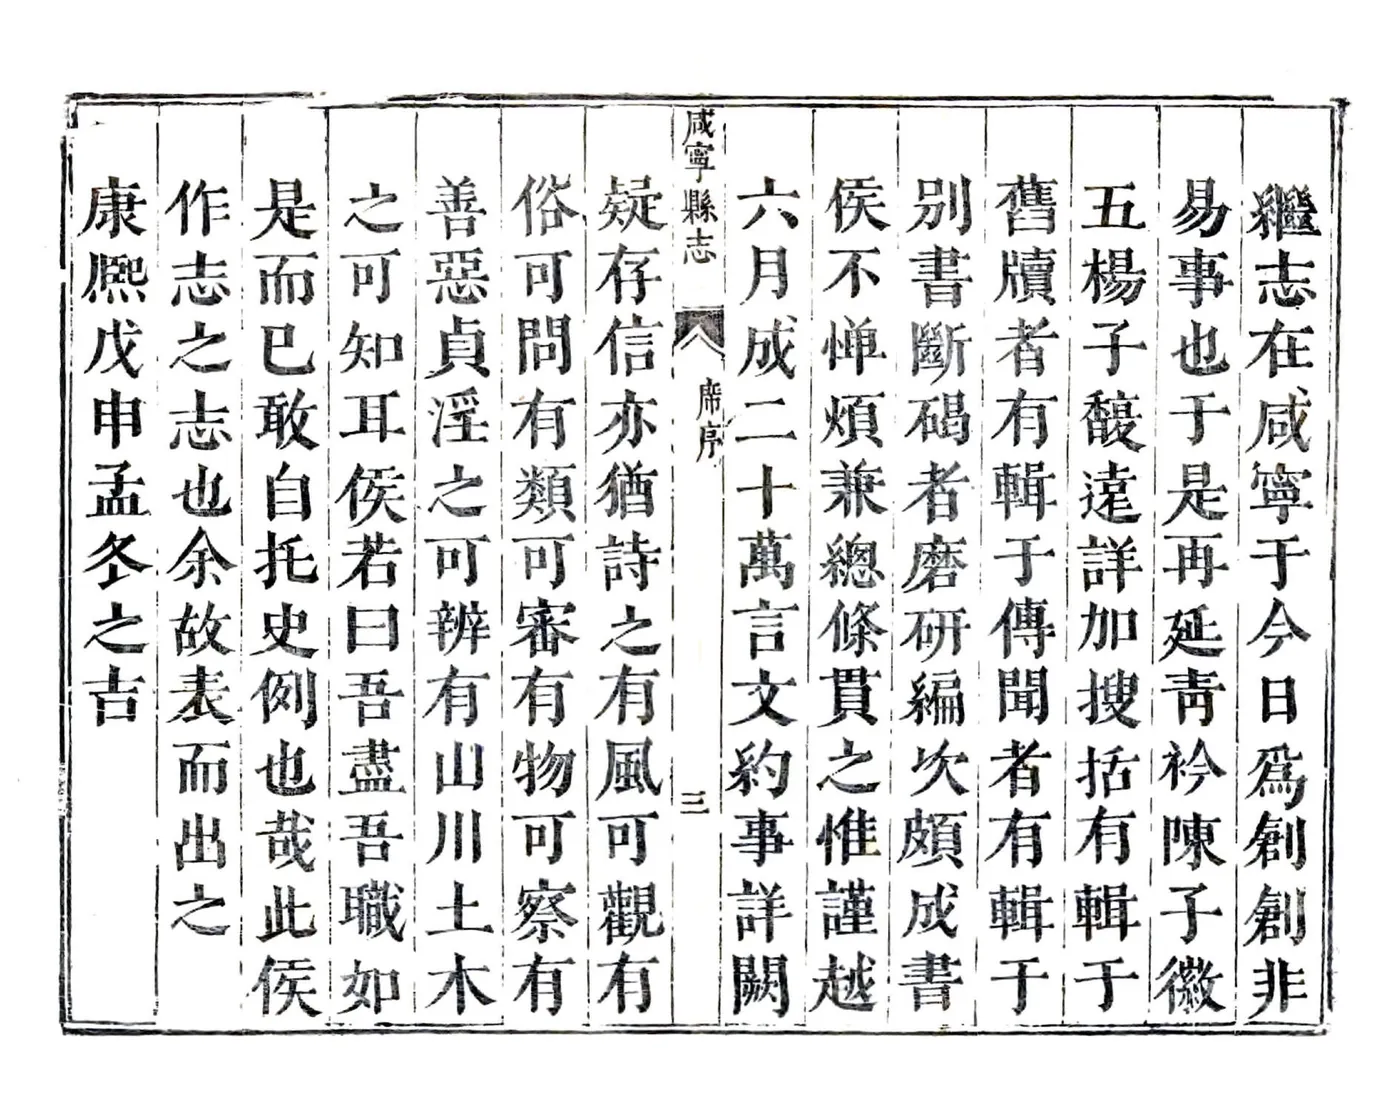 繼志在咸寧于今日爲創創非
易事也于是再延靑衿陳子徽
五楊子馥遠詳加搜括有輯于
舊牘者有輯于傳聞者有輯于
别書斷碣者磨研編次頗成書
侯不憚煩兼總條貫之惟謹越
六月成二十萬言文約事詳闕
咸寧縣志
席序
三
疑存信亦猶詩之有風可觀有
俗可問有類可審有物可察有
善惡貞淫之可辨有山川土木
之可知耳侯若曰吾盡吾職如
是而已敢自托史例也哉此侯
作志之志也余故表而出之
康熈戊申孟冬之吉